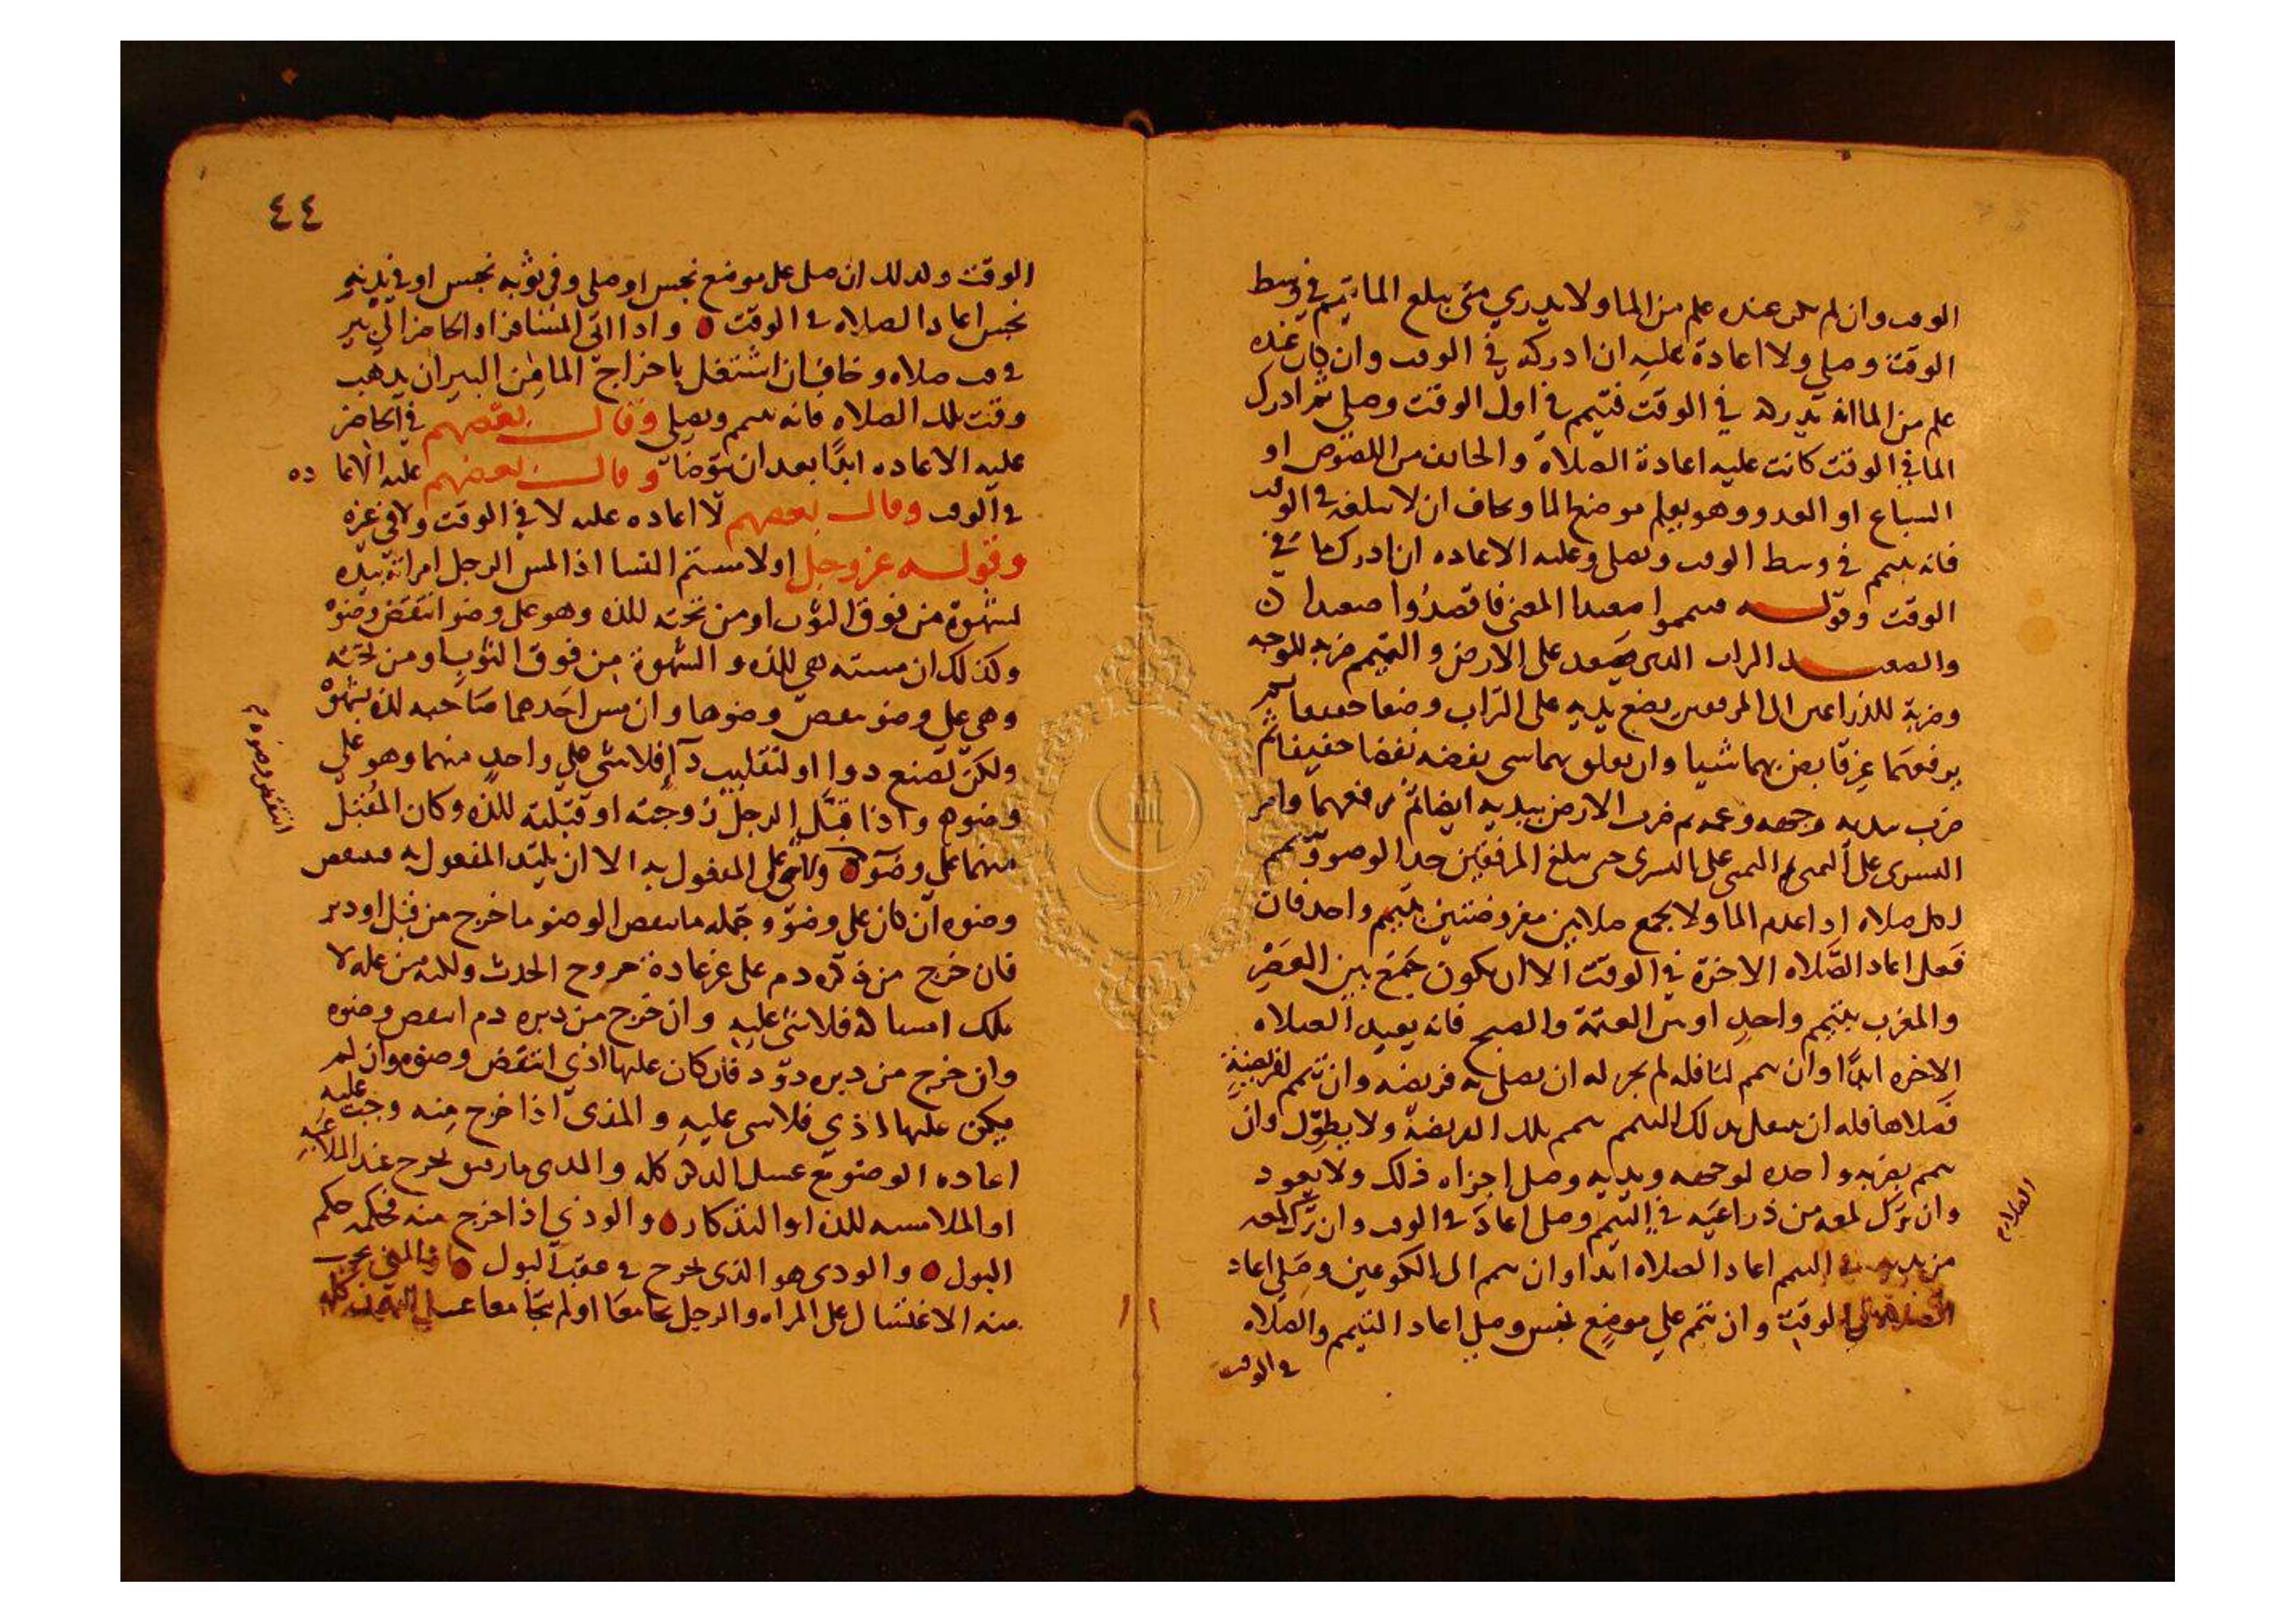 الوقت وان لم يكن عنده علم من الما ولا يدري متى يبلغ الما تيمم في وسط
الوقت وصلي ولا اعادة عليه ان ادركه في الوقت وان كان عنده
علم من الما انه يدركه في الوقت فتيمم في اول الوقت وصلي ثم ادرك
الما في الوقت كانت عليه اعادة الصلاة والخائف من اللصوص او
السباع او العدو وهو يعلم موضع الما ويخاف ان لا يبلغه في الوقت
فانه يتيمم في وسط الوقت ويصلي وعليه الاعاده ان ادرك ما في
الوقت وقوله فتيمموا صعيدا المعنى فاقصدوا صعيدا
والصعيد التراب الذي يصعد على الارض والتيمم ضربة للوجه
وضربة للذراعين الى المرفقين يضع يديه على التراب وضعا خفيفا ثم
يرفعهما غير قابض بهما شيا وان تعلق بهما شي نفضه نفضا خفيفا ثم
ضرب بيديه وجهه وعمه ثم ضرب الارض بيديه ايضا ثم رفعهما وامر
اليسرى على اليمنى ثم اليمنى على اليسرى حتى يبلغ المرفقين حد الوضو وتيمم
لكل صلاه اذا عدم الما ولا يجمع صلاتين مفروضتين بتيمم واحد فان
فعل اعاد الصلاه الاخرة في الوقت الا ان يكون جمع بين العصر
والمغرب بتيمم واحد او بين العتمة والصبح فانه يعيد الصلاه
الاخره ابدا وان تيمم لنافله لم يجز له ان يصلي به فريضه وان تيمم لفريضة
فصلاها فله ان يتنفل بذلك التيمم تيمم تلك الفريضة ولا يطول وان
تيمم بضربه واحده لوجهه ويديه وصلى اجزاه ذلك ولا يعود
وان ترك لمعه من ذراعيه في التيمم وصلى اعاد في الوقت وان ترك لمعه
من يديه في التيمم اعاد الصلاه ابدا وان تيمم الى الكوعين وصلي اعاد
الصلاة في الوقت وان تيمم علي موضع نجس وصلي اعاد التيمم والصلاه
في الوقت
الصلاة
٤٤
الوقت وكذلك ان صلى على موضع نجس او صلى وفي ثوبه نجس او في بدنه
نجس اعاد الصلاه في الوقت واذا اتى المسافر او الحاضر الى بير
في وقت صلاه وخاف ان اشتغل باخراج الما من البير ان يذهب
وقت تلك الصلاه فانه يتيمم ويصلي وقال بعضهم في الحاضر
عليه الاعاده ابدا بعد ان يتوضا وقال بعضهم عليه الاعاده
في الوقت وقال بعضهم لا اعاده عليه لا في الوقت ولا في غيره
وقوله عز وجل او لامستم النسا اذا لمس الرجل امراته بيده
لشهوة من فوق الثوب او من تحته للذه وهو على وضو انتقض وضوه
وكذلك ان مسته هي للذه والشهوة من فوق الثوب او من تحته
وهي على وضو ينقض وضوها وان مس احدهما صاحبه لا لشهوة
ولكن تصنع دوا او لتقليب فلا شي على واحد منهما وهو على
وضوه واذا قبل الرجل زوجته او قبلته للذه وكان المقبل
منهما على وضوه ولا شي على المفعول به الا ان يلتذ المفعول به فينتقض
وضوه ان كان على وضو وجمله ما ينقض الوضو ما خرج من قبل او دبر
فان خرج من ذكره دم على غير عادة خروج الحدث ولكنه من عله لا
يملك امساكه فلا شي عليه وان خرج من دبره دم انتقض وضوه
وان خرج من دبره دود فان كان عليها اذي انتقض وضوه وان لم
يكن عليها اذي فلا شي عليه والمذي اذا خرج منه وجب عليه
اعاده الوضو مع غسل الذكر كله والمذي ما رقيق يخرج عند الملاعبه
او الملامسه للذه او التذكار والوذي اذا خرج منه فحكمه حكم
البول والودي هو الذي يخرج في عقب البول والمني يجب
منه الاغتسال على المراه والرجل تجامعا او لم يتجامعا غسل البدن كله
انتقض وضوه